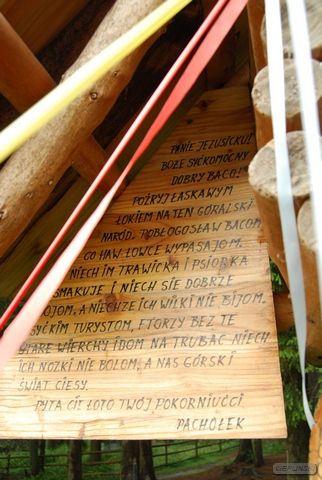 PANIE JEZUSICKU!
BOZE SYĆKOMOĆNY
DOBRY BACO!
POŹRYJ ŁASKAWYM
ŁOKIEM NA TEN GÓRALSKI
NARÓD. POBŁOGOSŁAW BACOM
CO HAW ŁOWCE WYPASAJOM.
NIECH IM TRAWICKA I PSIORKA
SMAKUJE I NIECH SIE DOBRZE
DOJOM, A NIECHZE ICH WILKI NIE BIJOM.
SYĆKIM TURYSTOM, FTORZY BEZ TE
STARE WIERCHY IDOM NA TRUBAĆ NIECH
ICH NOZKI NIE BOLOM, A NAS GÓRSKI
ŚWIAT CIESY.
PYTA CIE ŁOTO TWÓJ POKORNIUĆCI
PACHOŁEK